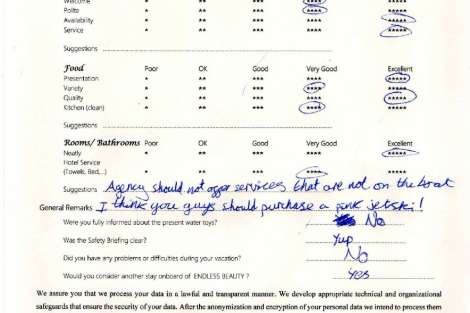 Welcome * ** *** **** *****
Polite * ** *** **** *****
Availability * ** *** **** *****
Service * ** *** **** *****
Suggestions
Food Poor OK Good Very Good Excellent
Presentation * ** *** **** *****
Variety * ** *** **** *****
Quality * ** *** **** *****
Kitchen (clean) * ** *** **** *****
Suggestions
Rooms/ Bathrooms Poor OK Good Very Good Excellent
Neatly * ** *** **** *****
Hotel Service
(Towels, Bed,...) * ** *** **** *****
Suggestions Agency should not offer services that are not on the boat
General Remarks I think you guys should purchase a pink jetski!
Were you fully informed about the present water toys? No
Was the Safety Briefing clear? Yup
Did you have any problems or difficulties during your vacation? No
Would you consider another stay onboard of ENDLESS BEAUTY ? Yes
We assure you that we process your data in a lawful and transparent manner. We develop appropriate technical and organizational
safeguards that ensure the security of your data. After the anonymization and encryption of your personal data we intend to process them